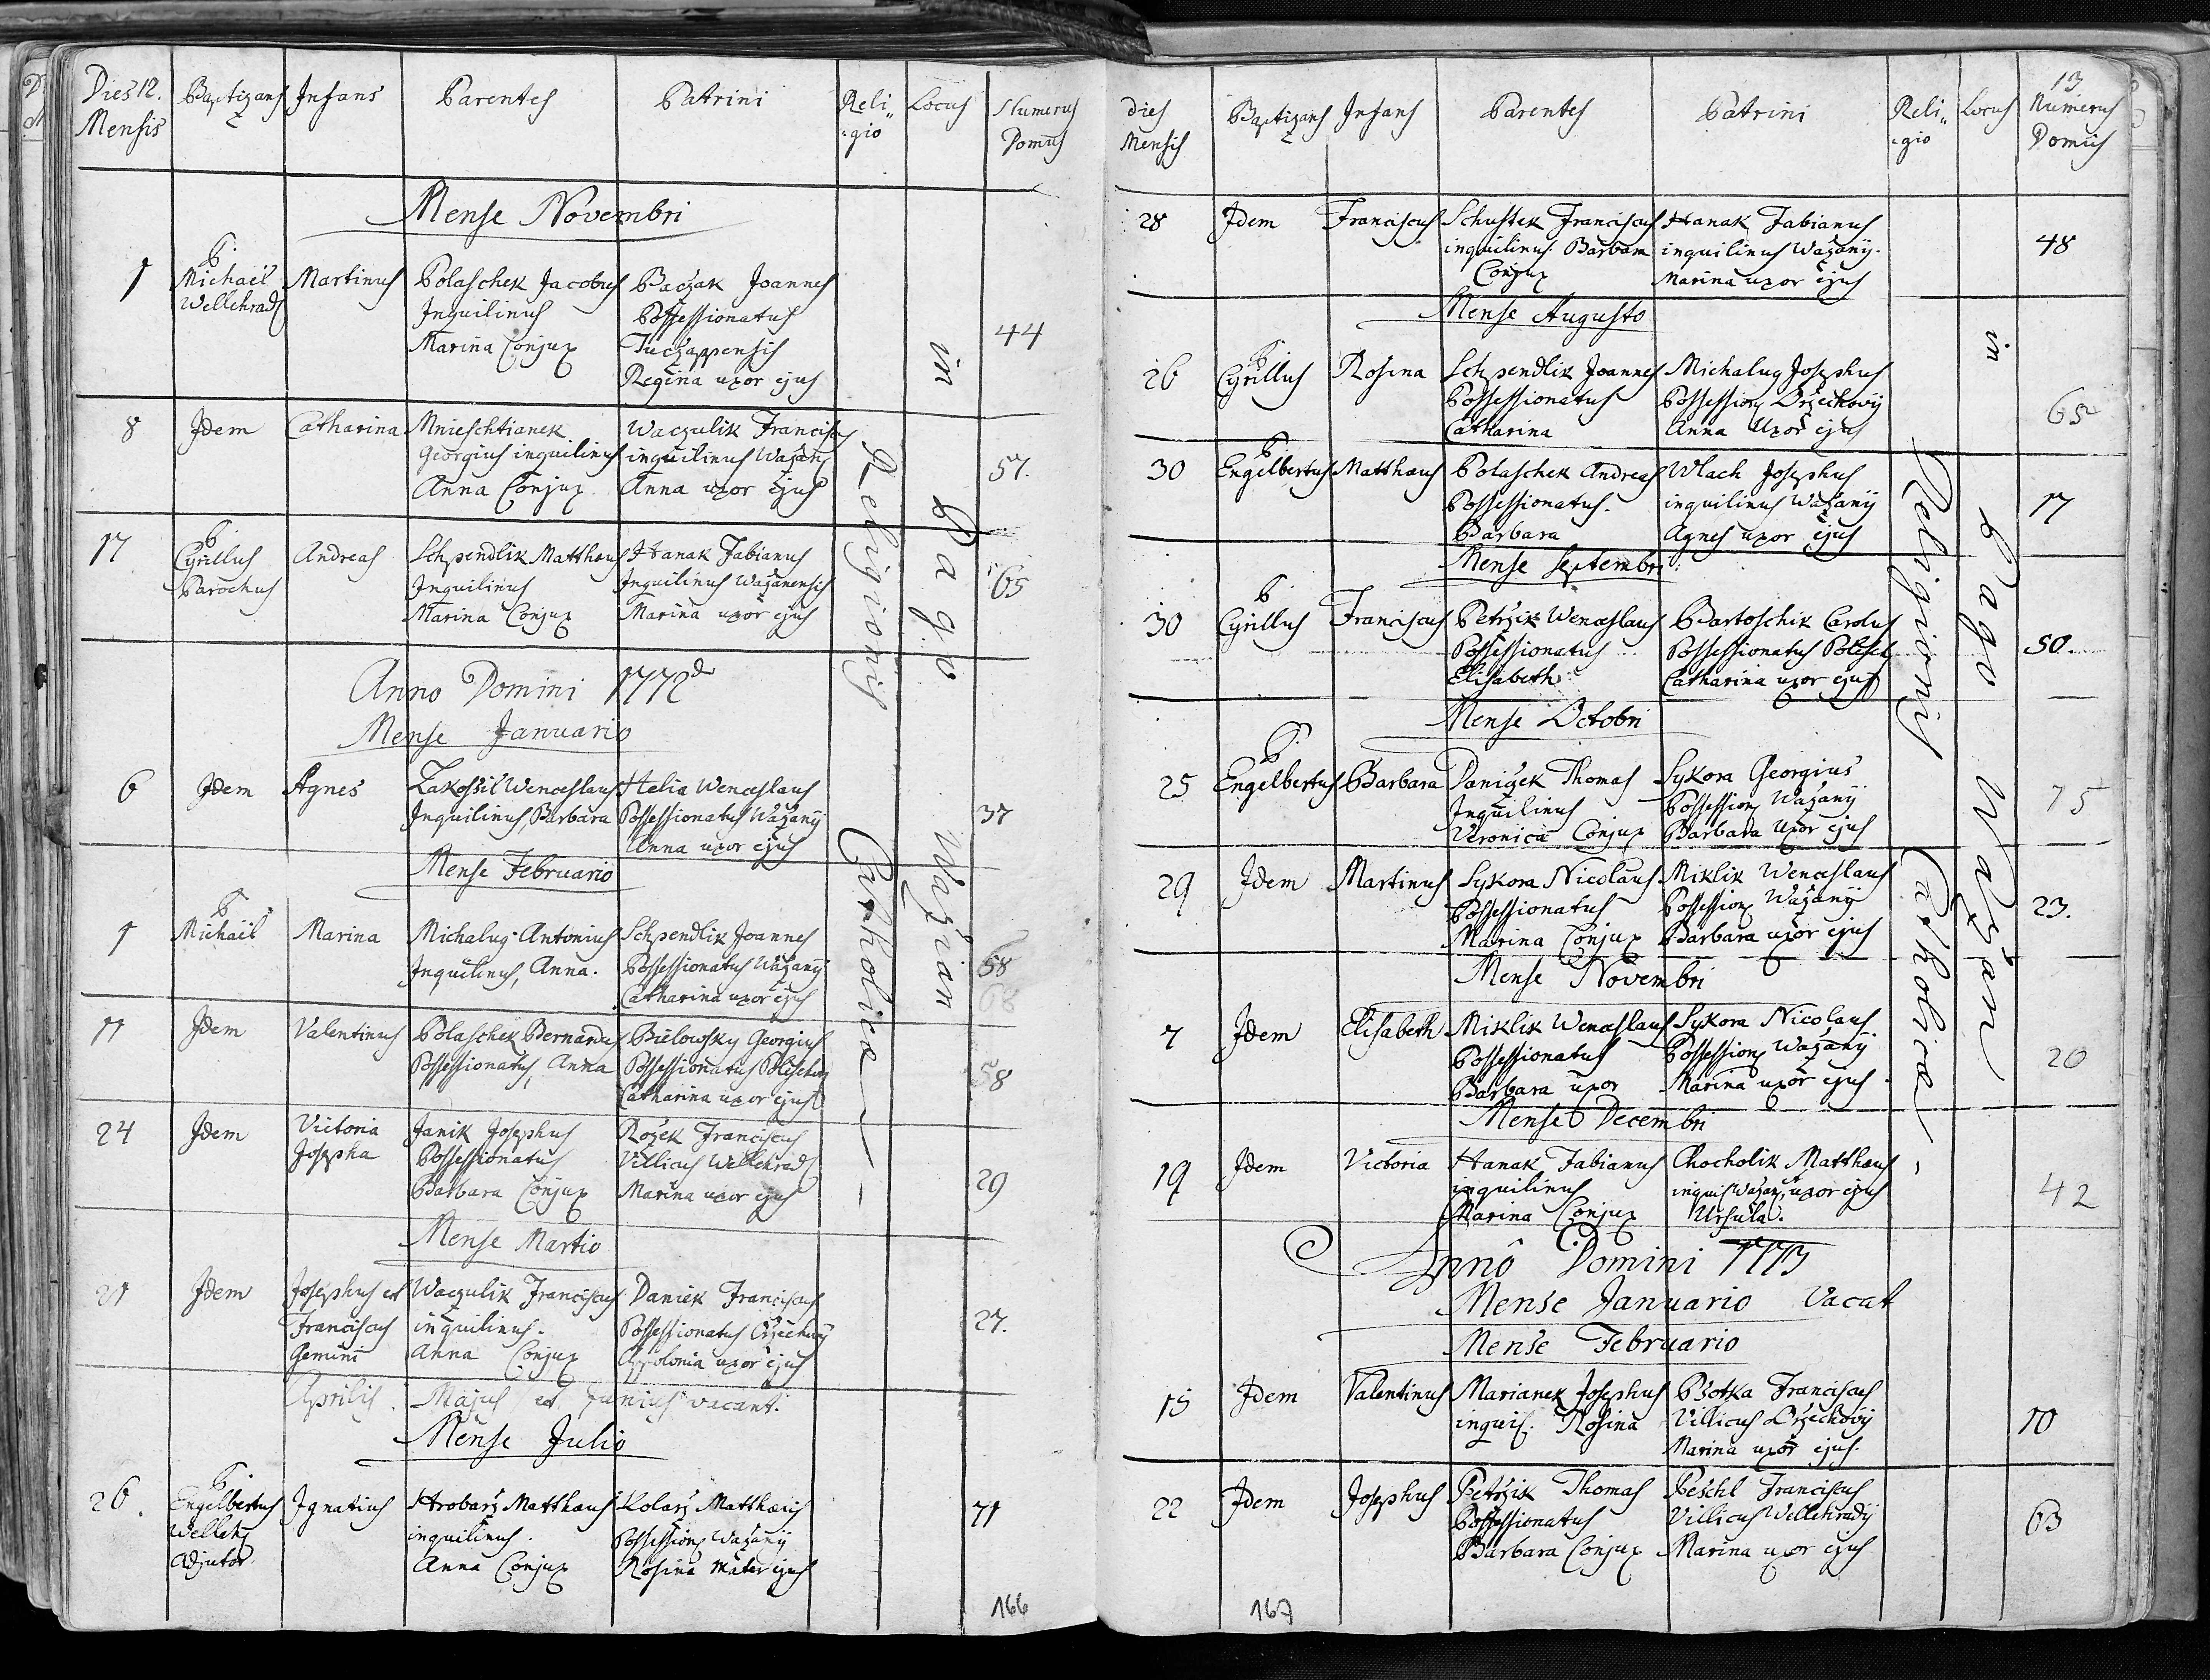 Dies 12. Mensis Baptizans Infans Parentes Patrini Reli„gio Locus Numerus Domus
Mense Novembri
1 P. Michael Martinus Polaschek Jacobus Baczak Joannes 44
Wellehrad Inquilinus Possessionatus
Marina Conjux Tuczappensis
Regina uxor ejus
8 Idem Catharina Mnieschtianek Waczulik Francisc 57.
Georgius inquilinus inquilinus Wažan
Anna Conjux Anna uxor ejus
17 P. Cyrillus Andreas Schpendlik Matthæus Hanak Fabianus 65
Parochus Inquilinus Inquilinus Wažanensis
Marina Conjux Marina uxor ejus
Anno Domini 1772do
Mense Januario
6 Idem Agnes Zakopil Wenceslaus Helia Wenceslaus 37
Inquilinus, Barbara Possessionatus Wažanÿ
Anna uxor ejus
Mense Februario
1 P. Michaël Marina Michalug Antonius Schpendlik Joannes 68
Inquilinus, Anna. Possessionatus Wažanÿ 68
Catharina uxor ejus
11 Idem Valentinus Polaschek Bernardus Bielowsky Georgius 58
Possessionatus, Anna Possessionatus Poleschow
Catharina uxor ejus
24 Idem Victoria Janik Josephus Rožek Franciscus 29
Josepha Possessionatus Villicus Wellehrad
Barbara Conjux Marina uxor ejus
Mense Martio
21 Idem Josephus et Waczulik Franciscus Daniek Franciscus 27.
Franciscus inquilinus. Possessionatus Oržechowÿ
Gemini Anna Conjux Appolonia uxor ejus
Aprilis. Majus et Junius vacant.
Mense Julio
26. P. Engelbertus Ignatius Hrobarž Matthæus Kolarž Matthæus 71
Welleh inquilinus. Possession Wažanÿ
Adjutor. Anna Conjux Rosina Mater ejus
Religionis Catholica
in Pago Wažian
166
13
Dies Mensis Baptizans Infans Parentes Patrini Reli„gio Locus Numerus Domus
28 Idem Franciscus Schustek Franciscus Hanak Fabianus 48
inquilinus Barbara inquilinus Wažanÿ.
Conjux Marina uxor ejus
Mense Augusto
26 P. Cyrillus Rosina Schpendlik Joannes Michalug Josephus 65
Possessionatus Possession Oržechovÿ
Catharina Anna Uxor ejus
30 P. Engelbertus Matthæus Polaschek Andreas Wlach Josephus 17
Possessionatus. inquilinus Wažanÿ
Barbara Agnes uxor ejus
Mense Septembri
30 P. Cyrillus Franciscus Petržik Wenceslaus Bartoschik Carolus 50.
Possessionatus Possessionatus Polesch
Elisabeth Catharina uxor ejus
Mense Octobri
25 P. Engelbertus Barbara Danižek Thomas Sykora Georgius 75
Inquilinus Possession Wažanÿ
Veronica Conjux Barbara Uxor ejus
29 Idem Martinus Sykora Nicolaus Miklik Wenceslaus 23.
Possessionatus Possession Wažanÿ
Marina Conjux Barbara uxor ejus
Mense Novembri
7 Idem Elisabeth Miklik Wenceslaus Sykora Nicolaus 20
Possessionatus Possession Wažanÿ
Barbara uxor Marina uxor ejus
Mense Decembri
19 Idem Victoria Hanak Fabianus Chocholik Matthæus 42
inquilinus inquis Wažan, et uxor ejus
Marina Conjux Ursula.
Anno Domini 1773
Mense Januario Vacat
Mense Februario
15 Idem Valentinus Marianek Josephus Psotka Franciscus 10
inquis. Rosina Villicus Oržechovÿ
Marina uxor ejus.
22 Idem Josephus Petržik Thomas Peschl Franciscus 63
Possessionatus Villicus Wellehradÿ
Barbara Conjux Marina uxor ejus
Religionis Catholica
in Pago Wažian
167